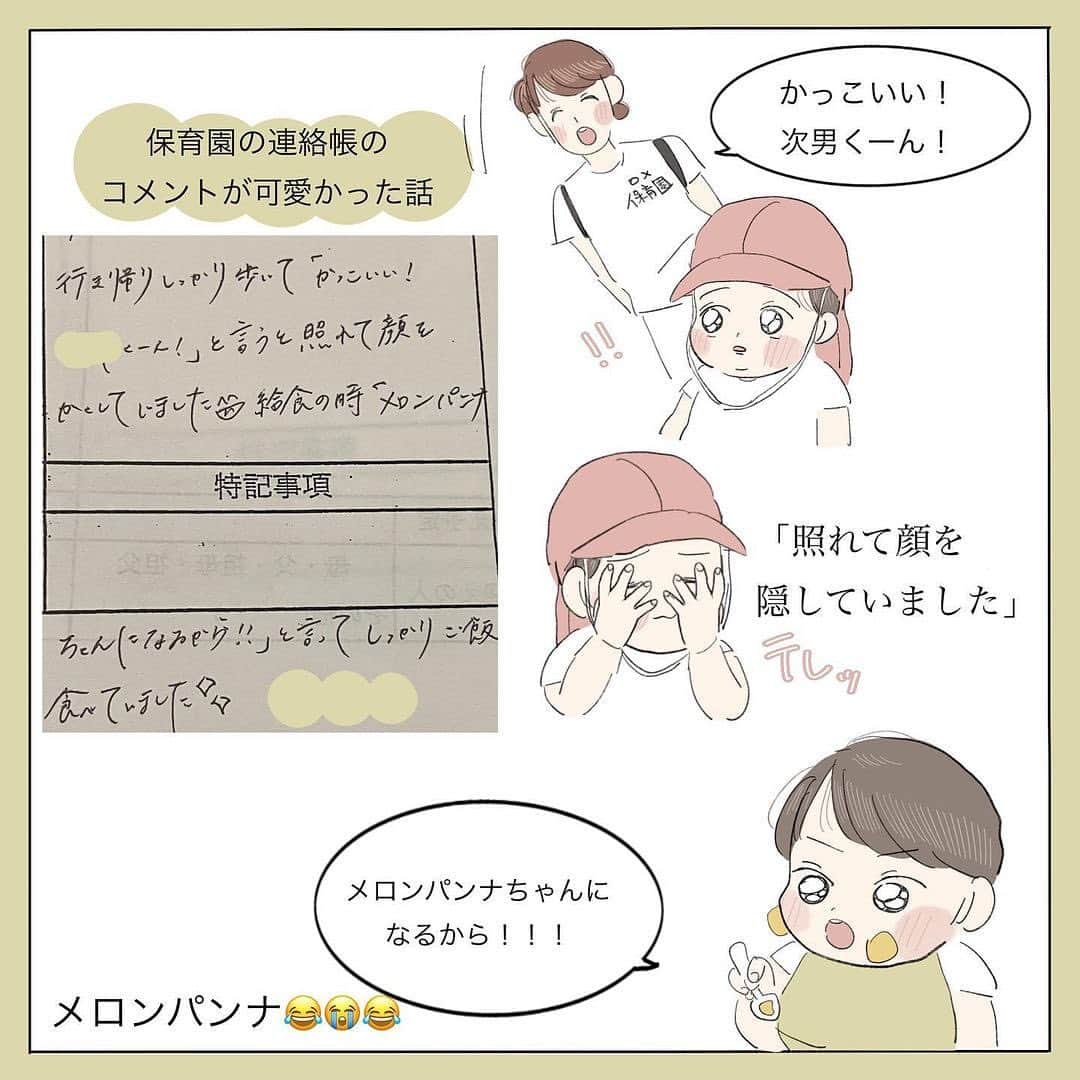 保育園の連絡帳の
コメントが可愛かった話
かっこいい！
次男くーん！
○×
保育園
行き帰りしっかり歩いて「かっこいい！
くーん！」と言うと照れて顔を
かくしていました 給食の時「メロンパンナ
特記事項
母・父・祖母・祖父
ちゃんになるから!!」と言ってしっかりご飯
食べていました
!!
「照れて顔を
隠していました」
テレッ
メロンパンナちゃんに
なるから！！！
メロンパンナ😂😭😂